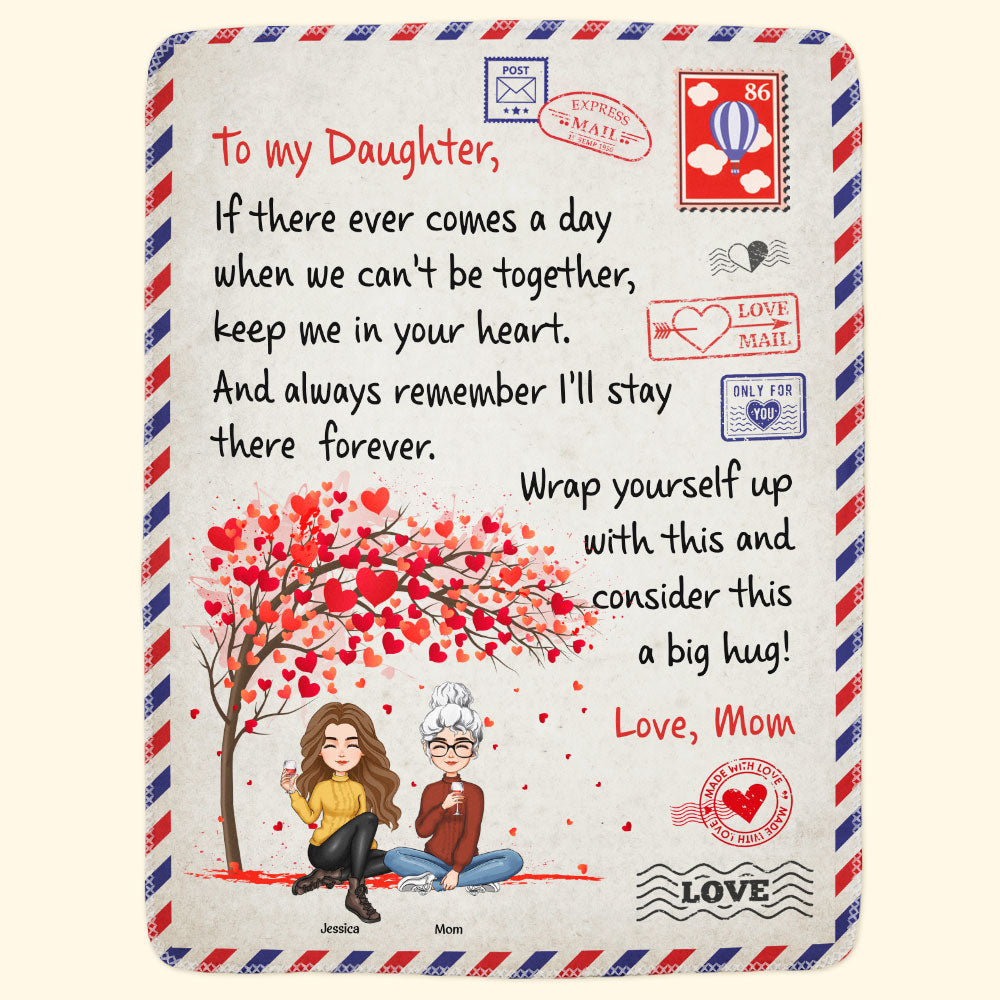 POST
EXPRESS
MAIL
86
To my Daughter,
If there ever comes a day
when we can't be together,
keep me in your heart.
And always remember I'll stay
there forever.
LOVE
MAIL
ONLY FOR
YOU
Wrap yourself up
with this and
consider this
a big hug!
Love, Mom
MADE WITH LOVE
MADE WITH LOVE
LOVE
Jessica
Mom